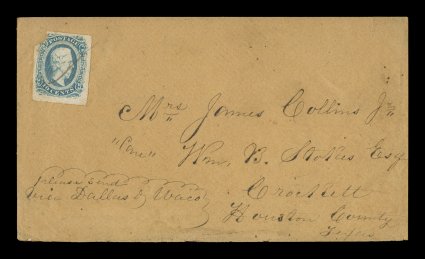 POSTAGE
10 CENTS
Mrs James Collins Jr
"Care" Wm. B. Stokes Esq
please send
via Dallas & Waco
Crockett
Houston County
Texas